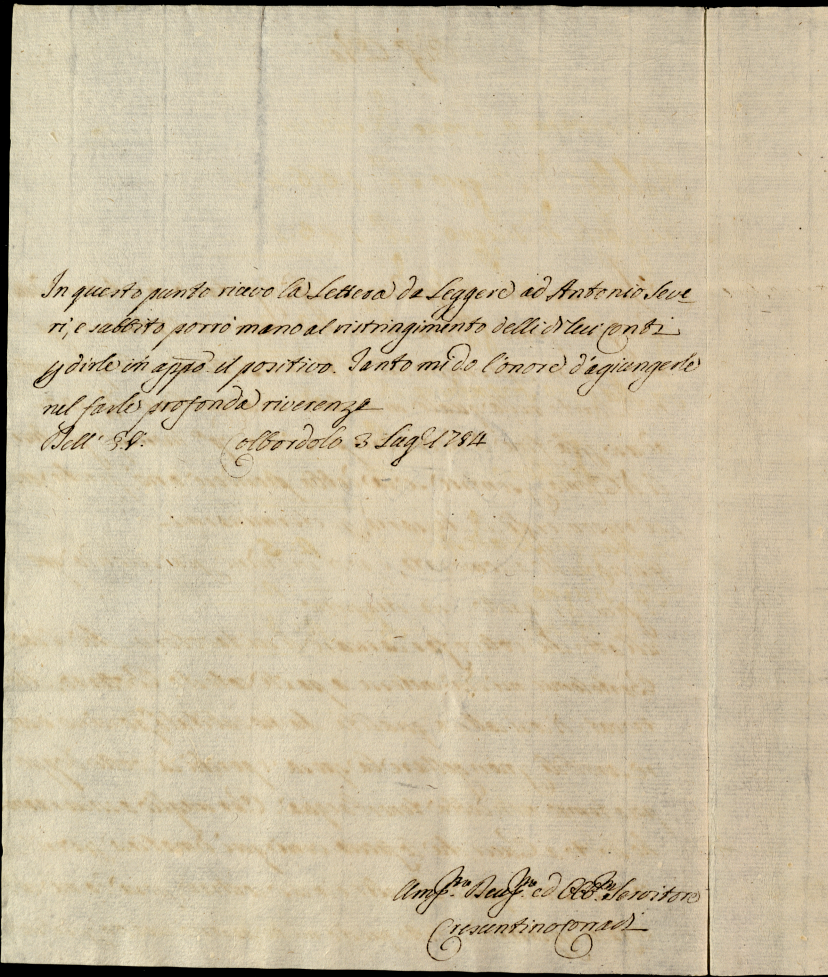 In questo punto ricevo la Lettera da Leggere ad Antonio Seve-
ri, e subbito porrò mano al ristringimento delli di lui Conti
p dirle in appo. il positivo. Tanto mi do l'onore d'agiungerle
nel farle profonda riverenza
Dell' Colbordolo 3 Lugo. 1784
ed Servitore
Crescentino Corradi